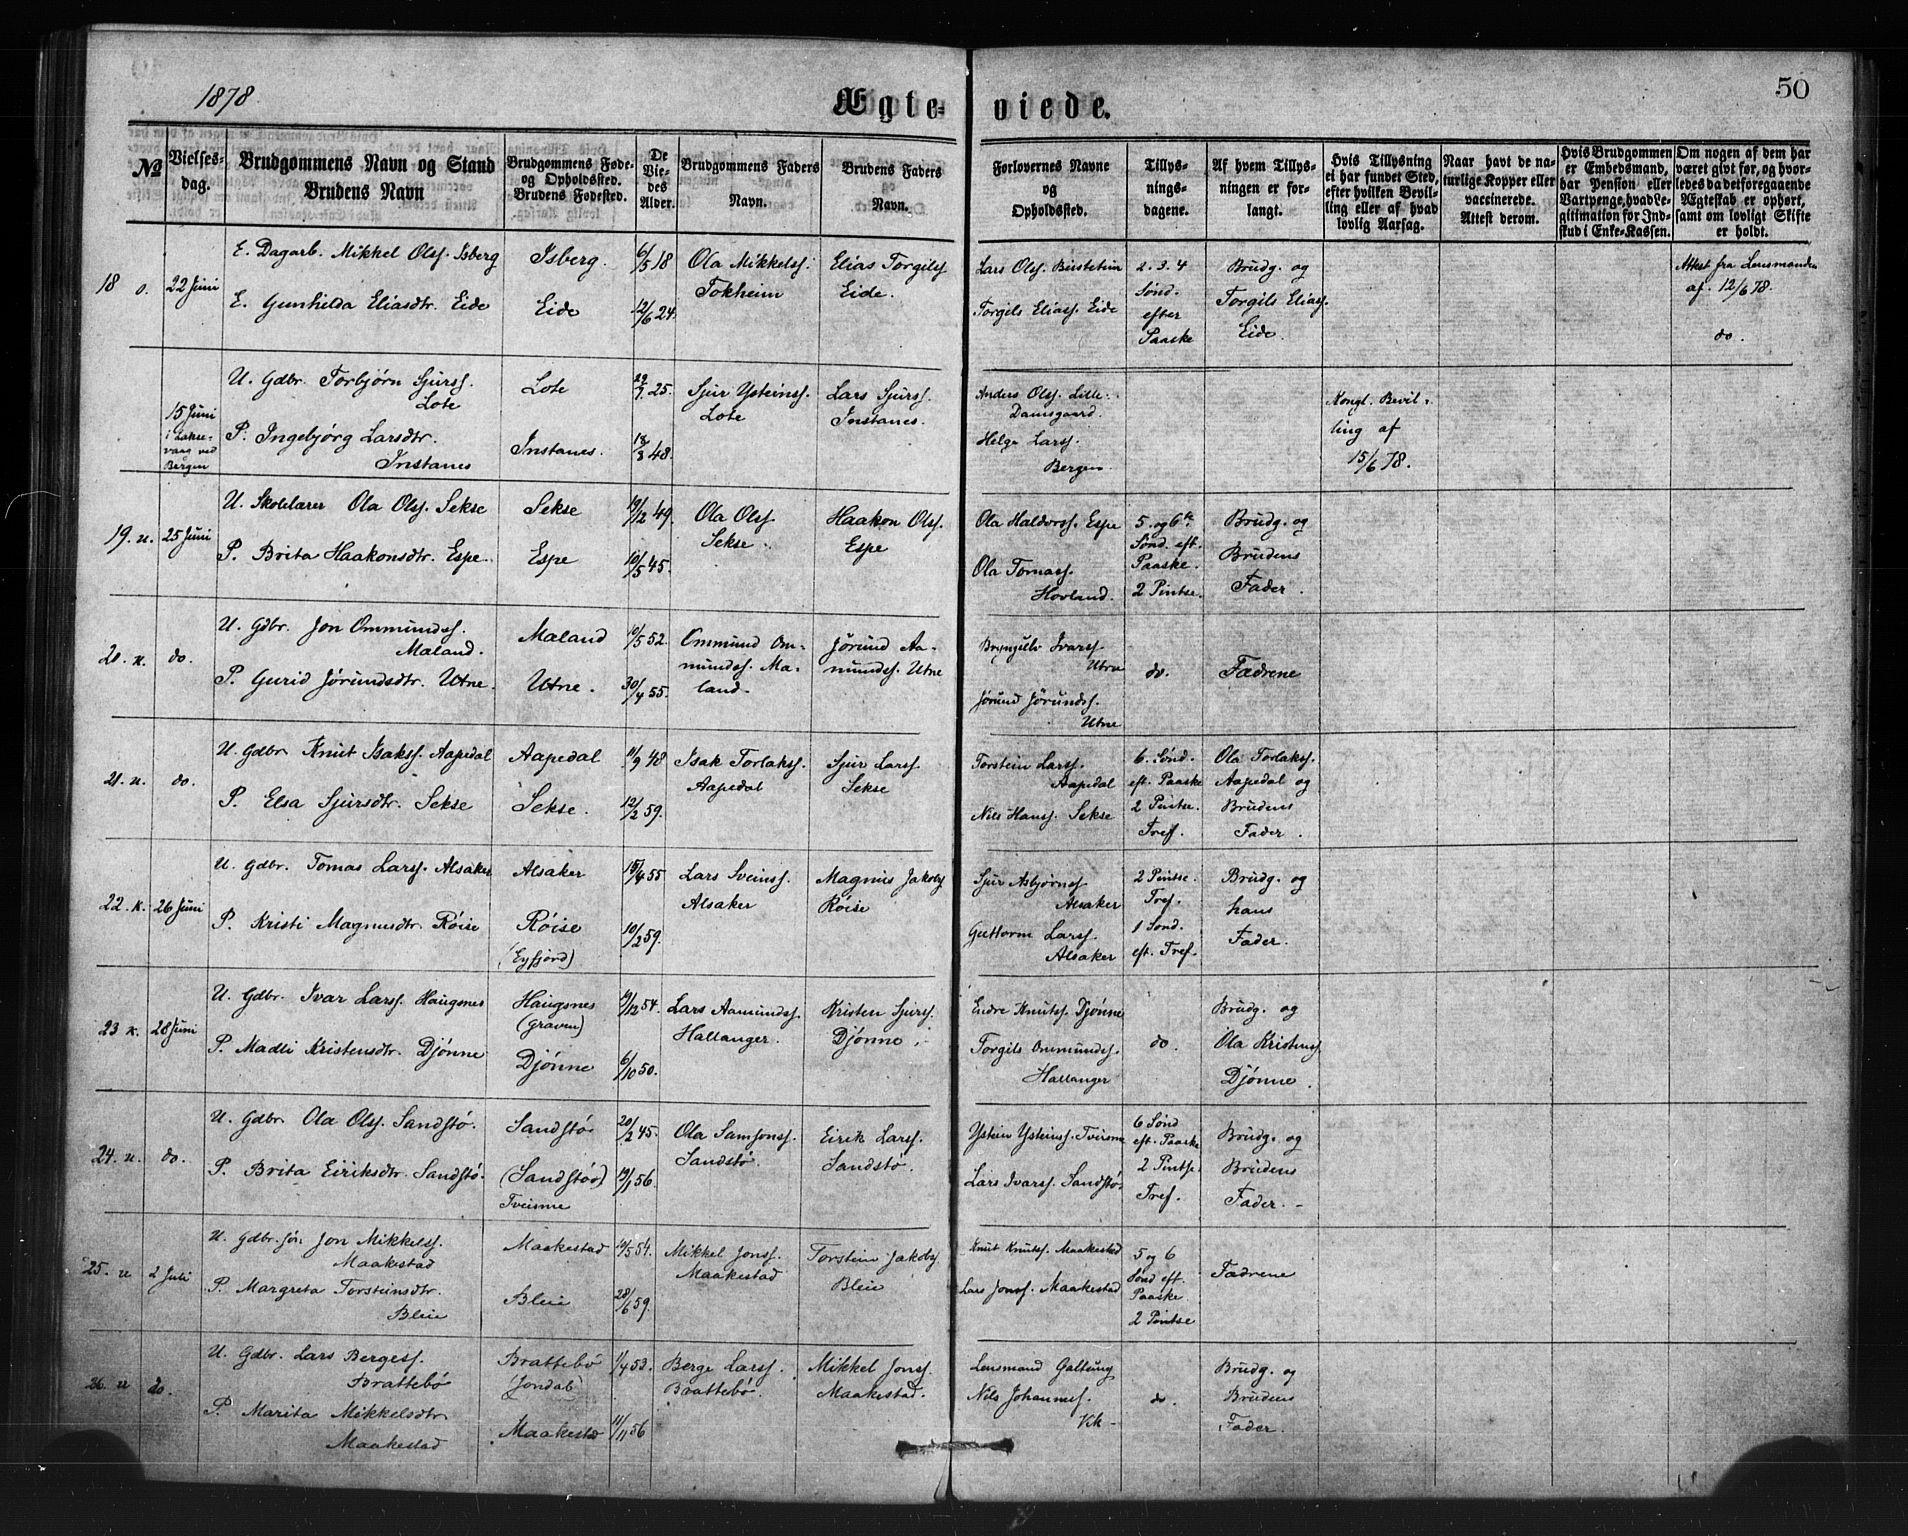 1878.
Ægte- viede.
50
№
Vielses-
dag.
Brudgommens Navn og Stand
Brudens Navn
Brudgommens Føde-
og Opholdssted.
Brudens Fødested.
De
Vie-
des
Alder.
Brudgommens Faders
Navn.
Brudens Faders
og
Navn.
Forlovernes Navne
og
Opholdssted.
Tillys-
nings-
dagene.
Af hvem Tillys-
ningen er for-
langt.
Hvis Tillysning
ei har fundet Sted,
efter hvilken Bevil-
ling eller af hvad
lovlig Aarsag.
Naar havt de na-
turlige Kopper eller
vaccinerede.
Attest derom.
Hvis Brudgommen
er Embedsmand,
har Pension eller
Vartpenge, hvad Le-
gitimation for Ind-
skud i Enke-Kassen.
Om nogen af dem har
været givt før, og hvor-
ledes da det foregaaende
Ægteskab er ophørt,
samt om lovligt Skifte
er holdt.
18 o.
22 Juni
E. Dagarb. Mikkel Ols. Isberg
E. Gunhilda Eliasdtr. Eide
Isberg.
Eide
6/5 18
12/6 24.
Ola Mikkelss.
Tokheim
Elias Torgilss
Eide.
Lars Ols. Birstein
Torgils Eliass. Eide
2. 3. 4
Sønd.
efter
Paaske
Brudg. og
Torgils Eliass.
Eide.
Attest fra Lensmanden
af. 12/6 78.
do.
15 Juni
i Lakse-
vaag ved
Bergen
U. Gdbr. Torbjørn Sjurss.
Lote
P. Ingebjørg Larsdtr.
Instanes
Lote
Instanes.
22/7 25.
13/3 48.
Sjur Ysteinss.
Lote
Lars Sjurss.
Instanes.
Anders Ols. Lille-
Damsgaard.
Helge Larss.
Bergen.
Kongl. Bevil-
ling af
15/6 78.
19. u.
25 Juni
U. Skolelærer Ola Ols. Sekse
P. Brita Haakonsdtr. Espe.
Sekse
Espe
19/12 49.
10/5 45.
Ola Ols
Sekse.
Haakon Ols.
Espe
Ola Haldorss. Espe
Ola Tomass.
Hovland.
5. og 6te
Sønd. eft.
Paaske.
2 Pintse.
Brudg. og
Brudens
Fader.
20. k.
do.
U. Gdbr. Jon Ommundss.
Maland.
P. Gurid Jørundsdtr. Utne.
Maland
Utne.
10/5 52.
30/4 55.
Ommund Om-
mundss. Ma-
land.
Jørund Aa-
mundss. Utne
Bryngelv Ivarss
Utne
Jørund Jørundss.
Utne
do.
Fædrene
21. u.
do.
U. Gdbr Knut Isakss. Aapedal
P. Elsa Sjursdtr. Sekse
Aapedal
Sekse.
11/9 48
12/2 59.
Isak Torlakss.
Aapedal
Sjur Larss
Sekse
Torstein Larss.
Aapedal
Nils Hanss. Sekse
6. Sønd.
eft. Paaske
2 Pintse.
Tref.
Ola Torlakss.
Aapedal og
Brudens
Fader.
22. k.
26 Juni
U. Gdbr. Tomas Larss. Alsaker
P. Kristi Magnusdtr. Røise
Alsaker
Røise
(Eyfjord)
15/4 55
10/2 59.
Lars Sveinss.
Alsaker
Magnus Jakobs
Røise
Sjur Asbjørnss
Alsaker
Guttorm Larss.
Alsaker
2 Pintse.
Tref.
1 Sønd.
eft. Tref.
Brudg. og
hans
Fader.
23 k.
28 Juni
U. Gdbr. Ivar Larss. Haugsnes
P. Madli Kristensdtr. Djønne
Haugsnes
(Graven)
Djønne
19/12 54.
6/10 50.
Lars Aamundss.
Hallanger.
Kristen Sjurss.
Djønne.
Endre Knutss. Djønne
Torgils Ommundss.
Hallanger
do.
Brudg. og
Ola Kristenss
Djønne.
24. u.
do.
U. Gdbr. Ola Ols. Sandstø.
P. Brita Eiriksdtr. Sandstø.
Sandstø
(Sandstø)
Tveisme
20/2 45.
19/1 56.
Ola Samsonss.
Sandstø.
Eirik Larss.
Sandstø.
Ystein Ysteinss. Tveisme
Lars Ivarss. Sandstø
6 Sønd
eft. Paaske
2 Pintse.
Tref.
Brudg. og
Brudens
Fader. -
25. u
2 Juli
U. Gdbr. søn Jon Mikkelss.
Maakestad
P. Margreta Torsteinsdtr.
Bleie
Maakestad
Bleie
19/5 54.
28/6 59.
Mikkel Jonss.
Maakestad
Torstein Jakobs.
Bleie
Knut Knutss. Maakestad
Lars Jonss. Maakestad
5 og 6
Sønd eft.
Paaske
2 Pintse
Fædrene
26. u
do.
U. Gdbr. Lars Bergess.
Brattebø
P. Marita Mikkelsdtr
Maakestad
Brattebø
(Jondal)
Maakestad
1/4 53.
11/11 56
Berge Larss.
Brattebø.
Mikkel Jonss.
Maakestad.
Lensmand Galtung
Nils Johanness.
Vik-
do.
Brudg. og
Brudens
Fader.